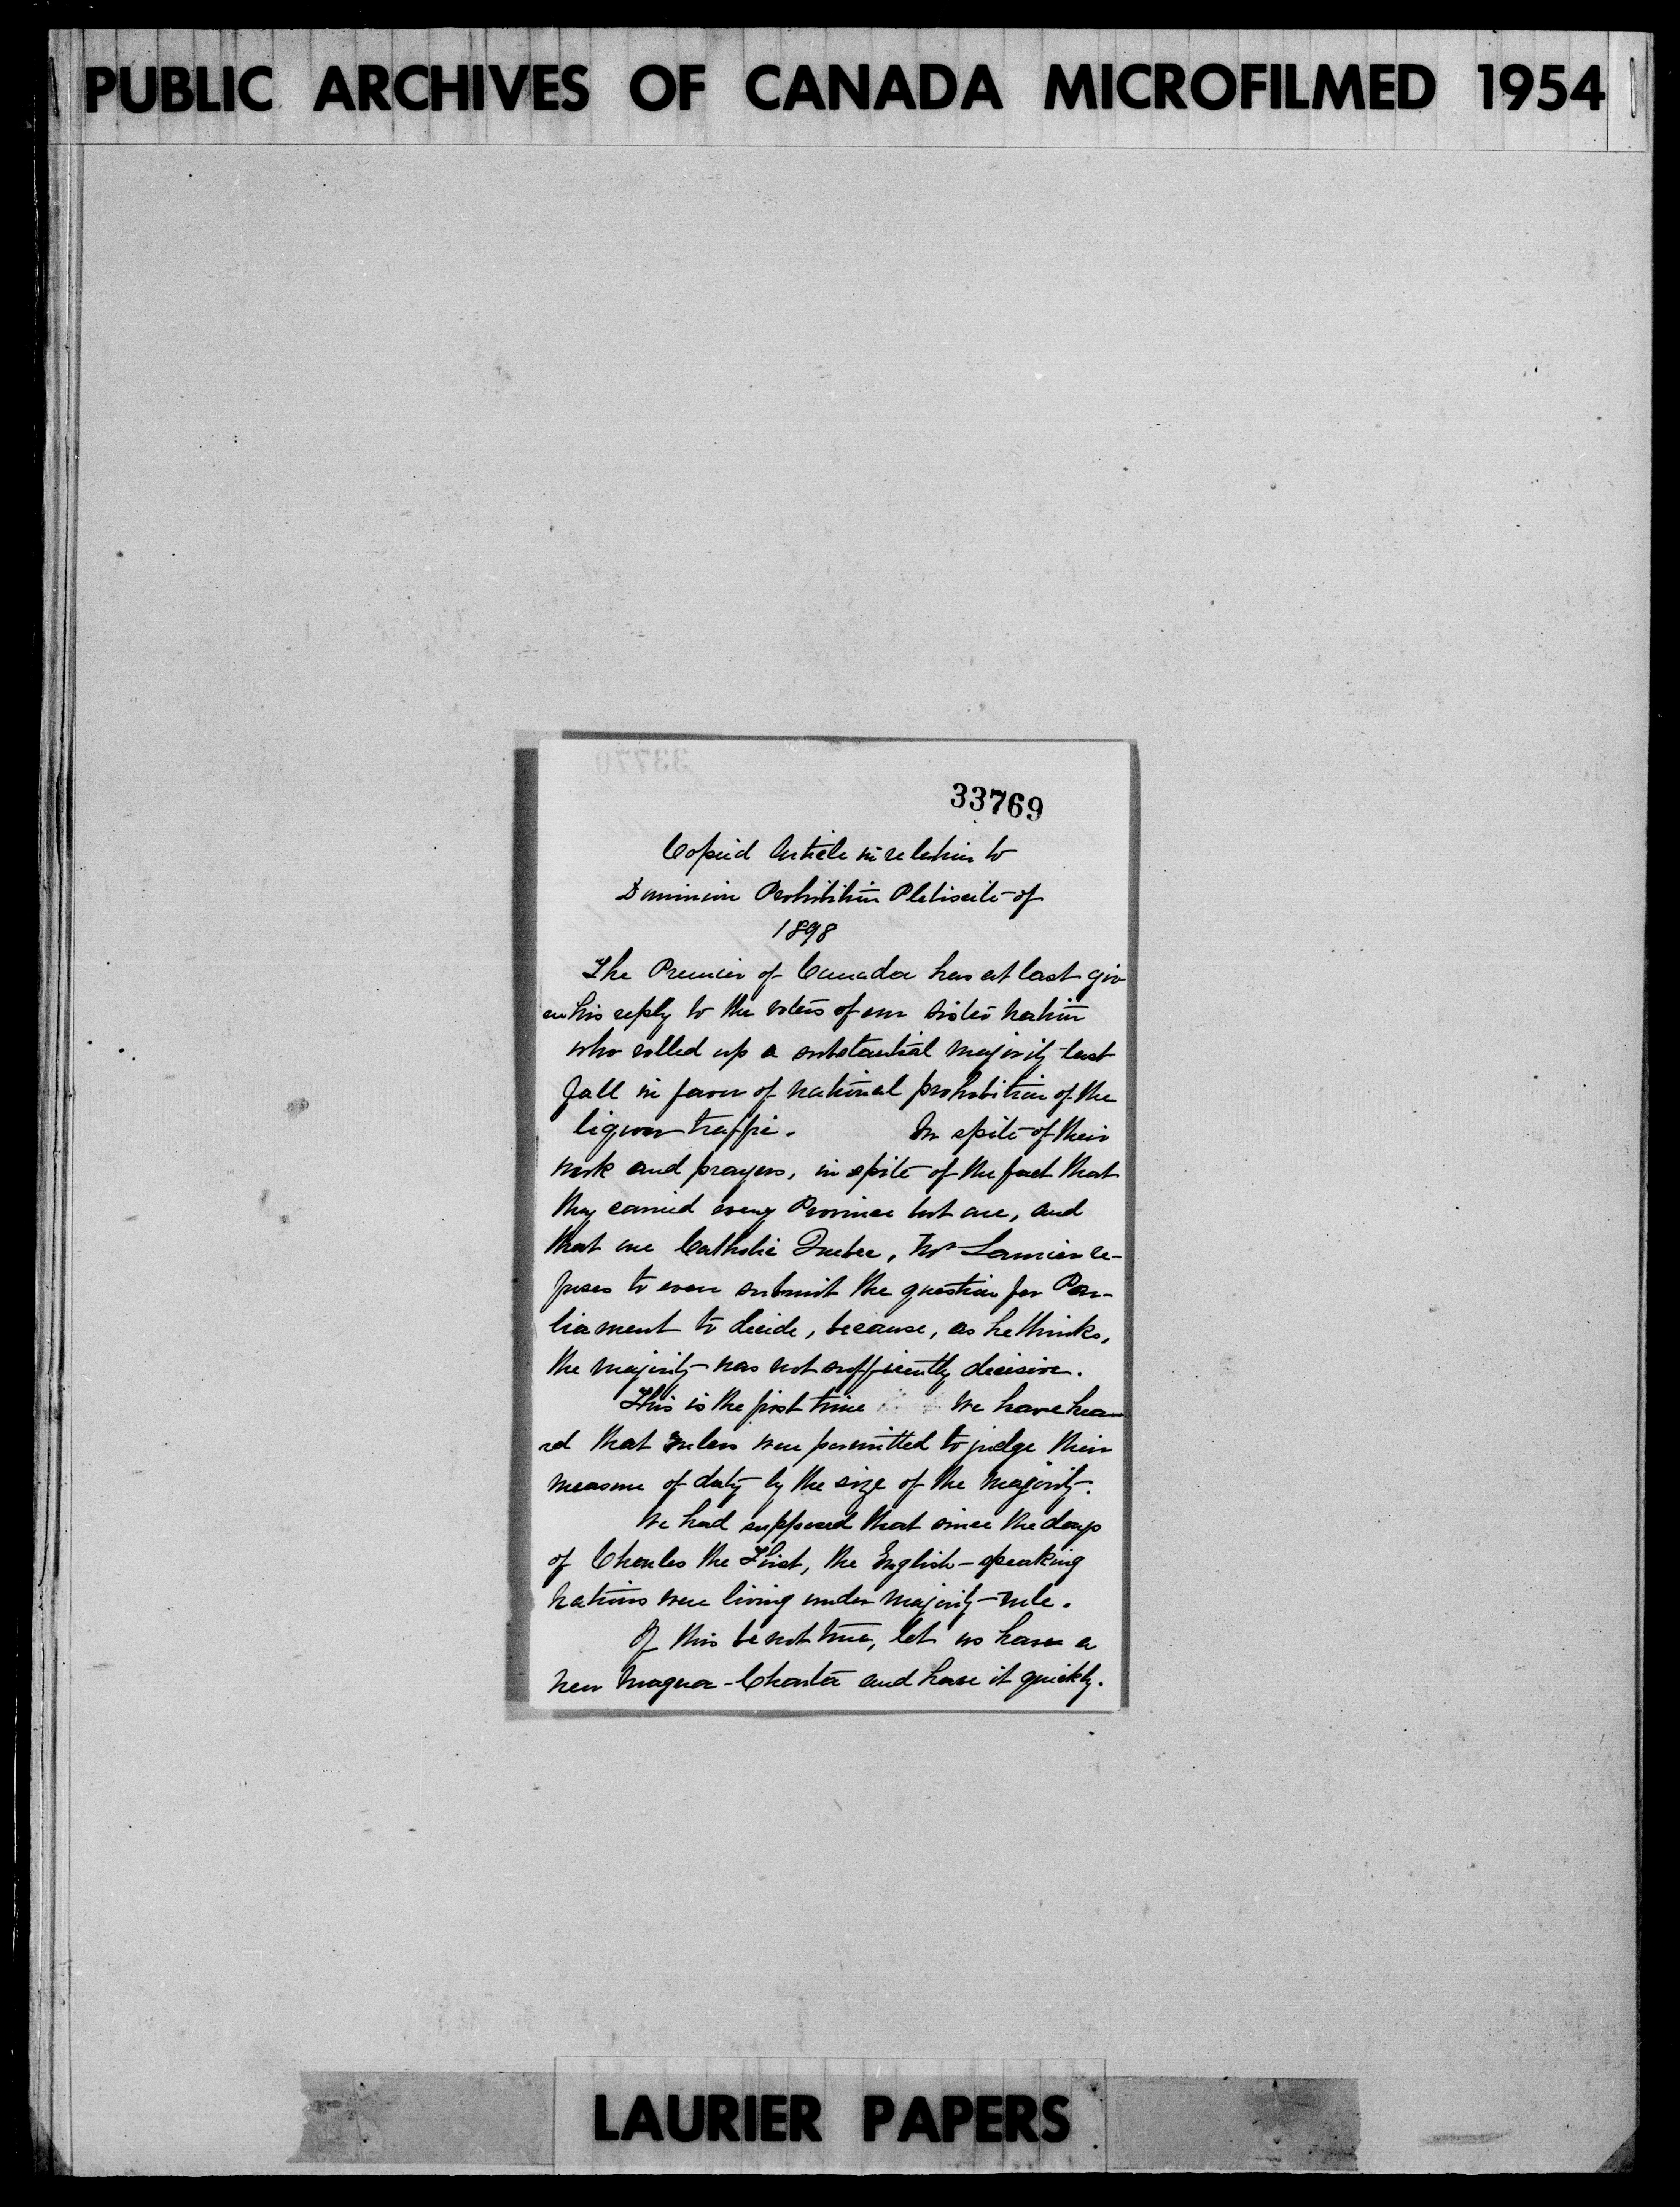 PUBLIC ARCHIVES OF CANADA MICROFILMED 1954
33770
33769
Copied Article in relation to
Dominion Prohibition Plebiscite of
1898
The Premier of Canada has at last giv
en his reply to the voters of our sister nation
who rolled up a substantial majority last
fall in favor of national prohibition of the
liquor traffic. In spite of their
work and prayers, in spite of the fact that
they carried every Province but one, and
that one Catholic Quebec, Mr Laurier re-
fuses to even submit the question for Par-
liament to decide, because, as he thinks,
the majority was not sufficiently decisive.
This is the first time we have hea
rd that rulers were permitted to judge their
measure of duty by the size of the majority.
We had supposed that since the days
of Charles the First, the English-speaking
nations were living under majority-rule.
If this be not true, let us have a
new Magna-Charta and have it quickly.
LAURIER PAPERS